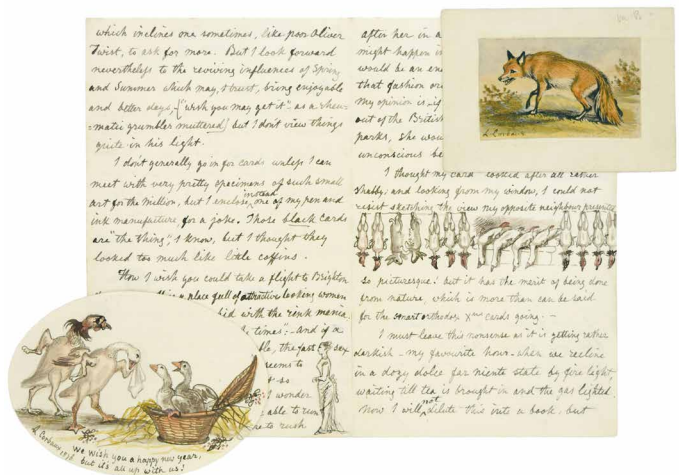 which inclines one sometimes, like poor Oliver
Twist, to ask for more. But I look forward
nevertheless to the reviving influences of Spring
and Summer which may, I trust, bring enjoyable
and better days – ["wish you may get it" as a rheu-
matic grumbler muttered] but I don't view things
quite in his light.
I don't generally go in for cards unless I can
meet with very pretty specimens of such small
art for the million, but I enclose instead one of my pen and
ink manufacture for a joke. Those black cards
are "the thing", I know, but I thought they
looked too much like little coffins.
How I wish you could take a flight to Brighton
a place full of attractive looking women
with the rink mania
times": – And if a
the fast sex
seems to
so
I wonder
able to run
to rush
L Corbaux 1876
We wish you a happy new year,
but it's all up with us!
after her in a
might happen i
would be an en
that fashion or
my opinion is, if
out of the British
parks, she wou
unconscious be
I thought my card looked after all rather
shabby; and looking from my window, I could not
resist sketching the view my opposite neighbours presented
so picturesque! but it has the merit of being done
from nature, which is more than can be said
for the smart orthodox Xmas cards going. –
I must leave this nonsense as it is getting rather
darkish – my favourite hour – when we recline
in a dozy, dolce far niente state by fire light,
waiting till tea is brought in and the gas lighted.
Now I will not dilute this into a book, but
L. Corbaux